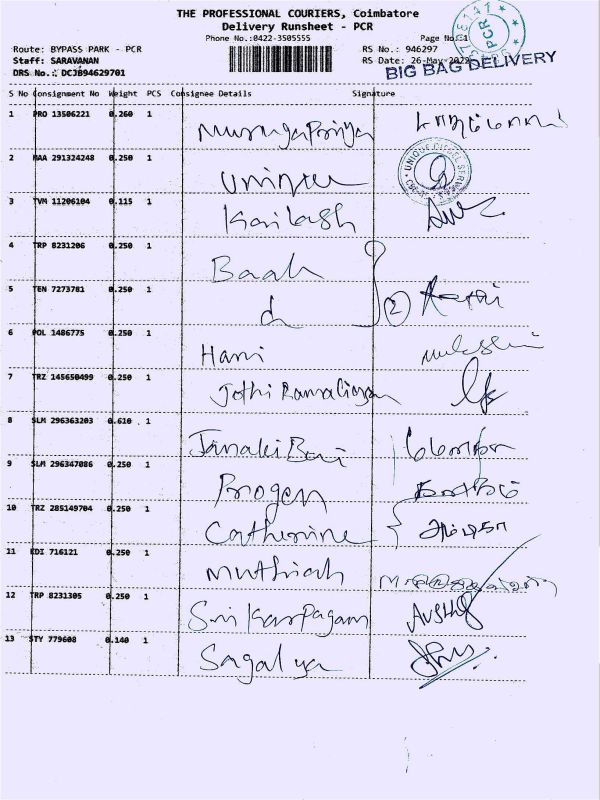 THE PROFESSIONAL COURIERS, Coimbatore
Delivery Runsheet - PCR
Phone No.:0422-3505555 Page No.:1
Route: BYPASS PARK - PCR RS No.: 946297
Staff: SARAVANAN RS Date: 26-May-2022
DRS No.: DCJB94629701
PCR
BIG BAG DELIVERY
S No Consignment No Weight PCS Consignee Details Signature
1 PRO 13506221 0.260 1 MurugaPriya
2 MAA 291324248 0.250 1 Unique
UNIQUE DIESEL SERVICE
3 TVM 11206104 0.115 1 Kailash
4 TRP 8231206 0.250 1 Baah
5 TEN 7273781 0.250 1 d 2
6 POL 1486775 0.250 1 Hami
7 TRZ 145650499 0.250 1 Jothi Ramalingam
8 SLM 296363203 0.610 1 Janaki Bai
9 SLM 296347086 0.250 1 Progen
10 TRZ 285149704 0.250 1 Catherine
11 KDI 716121 0.250 1 Muthiah
12 TRP 8231305 0.250 1 Sri Karpagam
13 STY 779608 0.140 1 Sagalya